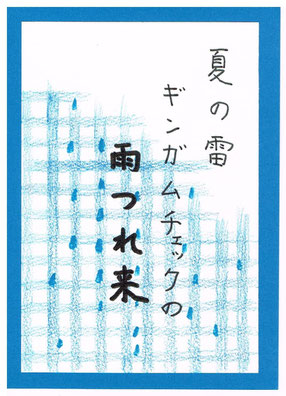 夏の雷
ギンガムチェックの
雨つれ来